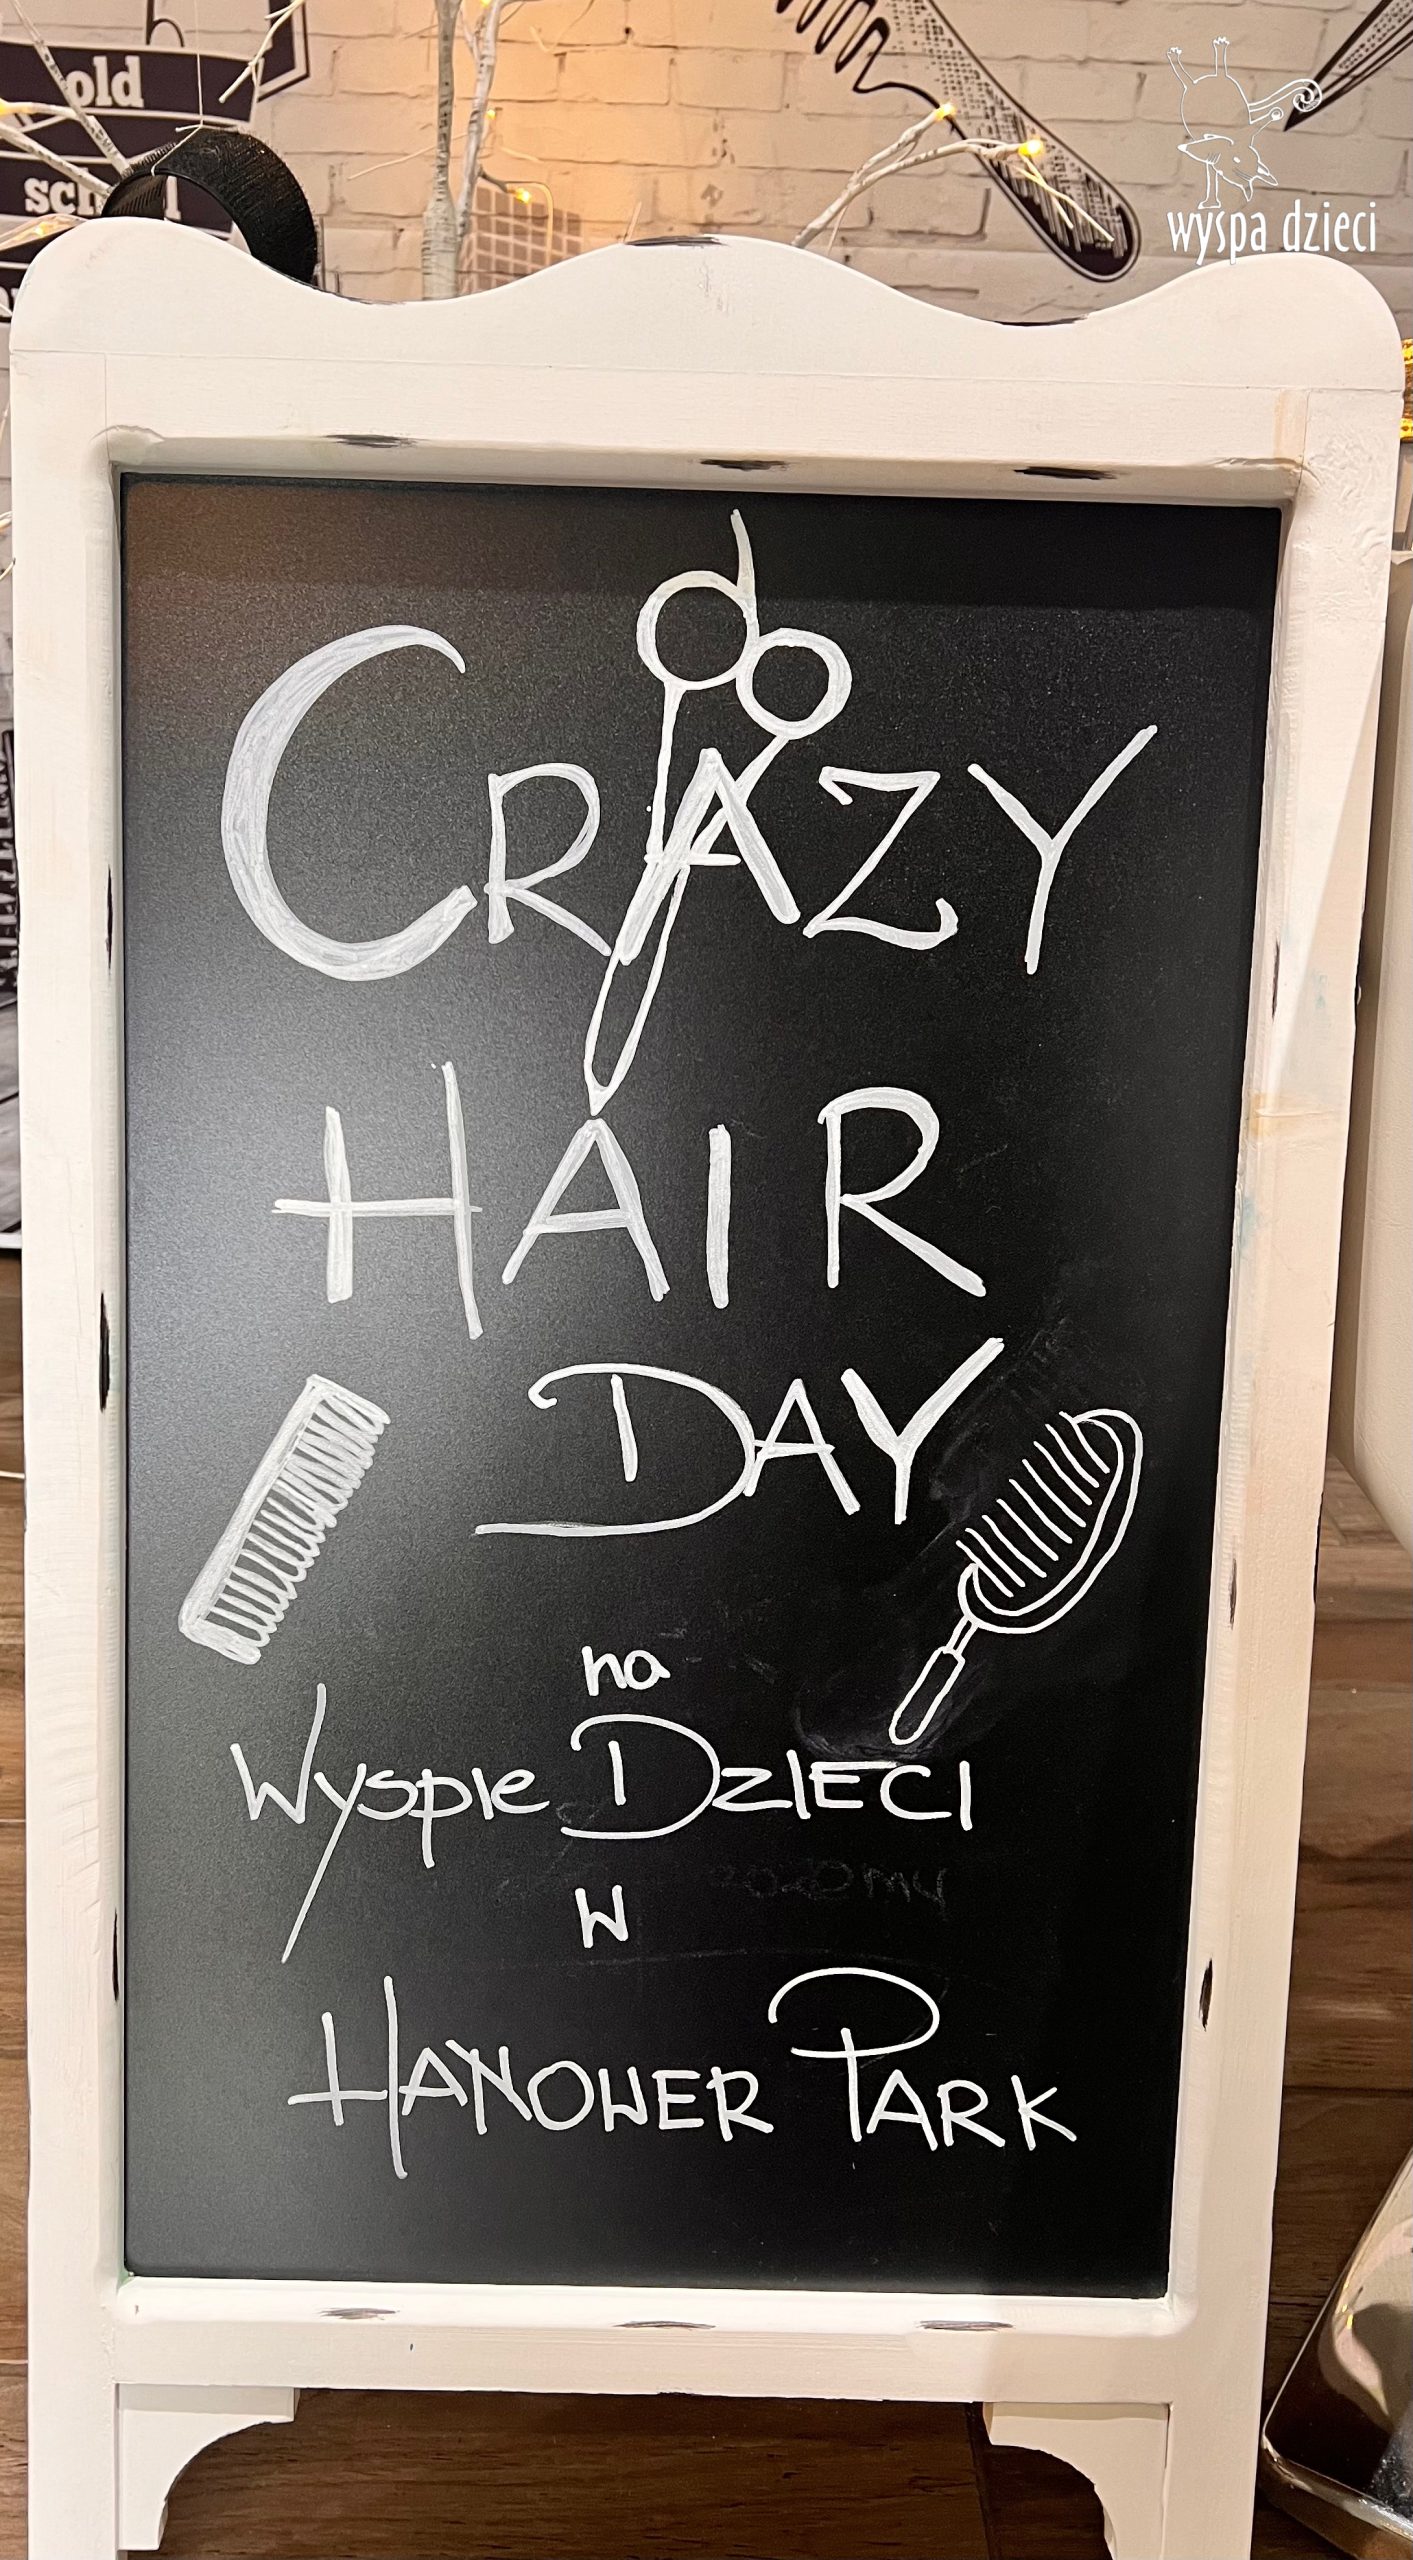 old
school
wyspa dzieci
CRAZY
HAIR
DAY
na
Wyspie DZIECI
W
HANOWER PARK